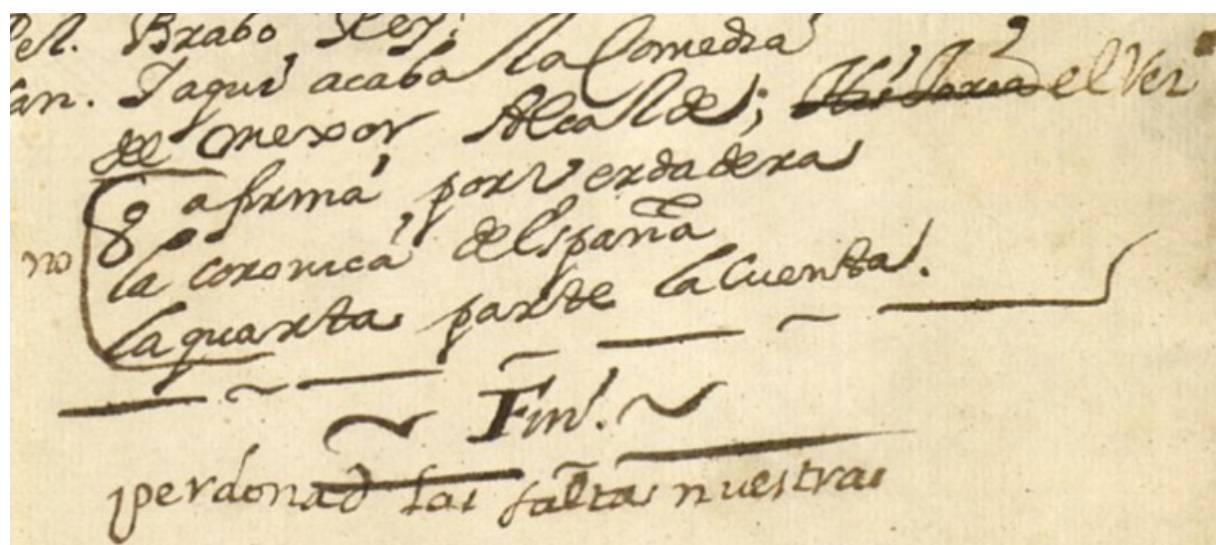 Pel. Brabo Rey;
San. Jaqui acaba la Comedia
del mexor Alcalde; Historia el Rei
q afirma por verdadera
no
la coronica de España
la quarta parte la cuenta.
Fin.
perdonad las faltas nuestras